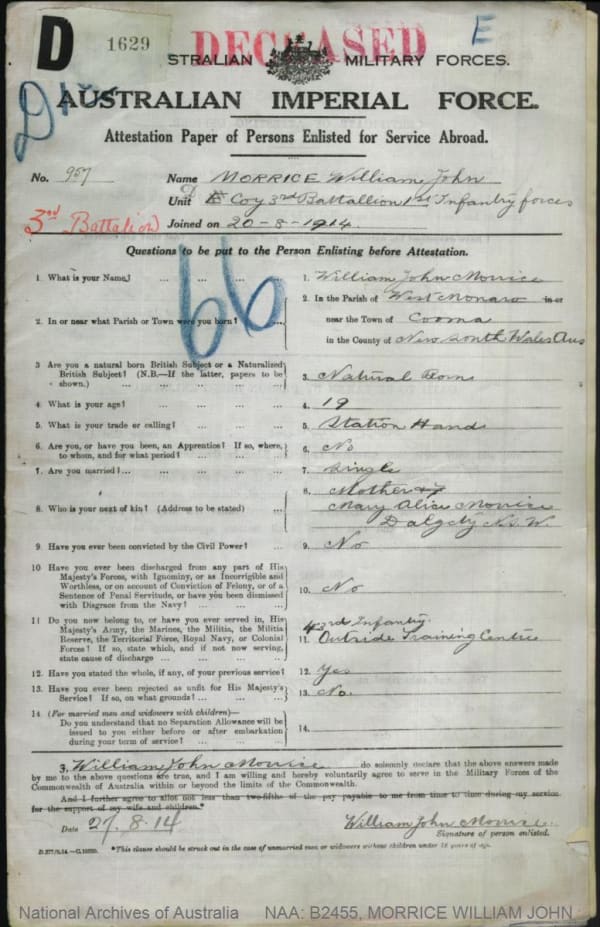 D
1629
DECEASED
E
STRALIAN MILITARY FORCES.
AUSTRALIAN IMPERIAL FORCE.
Attestation Paper of Persons Enlisted for Service Abroad.
No. 957 Name MORRICE William John
Unit D Coy 3rd Battallion 1st Infantry forces
3rd Battalion
Joined on 20-8-1914.
Questions to be put to the Person Enlisting before Attestation.
66
1. What is your Name? ... ... ... ... 1. William John Morrice
2. In or near what Parish or Town were you born? ... 2. In the Parish of West Monaro in or
near the Town of Cooma
in the County of New South Wales Aus
3 Are you a natural born British Subject or a Naturalized
British Subject? (N.B.—If the latter, papers to be
shown.) ... ... ... ... ... 3. Natural Born
4. What is your age? ... ... ... ... 4. 19
5. What is your trade or calling? ... ... ... 5. Station Hand
6. Are you, or have you been, an Apprentice? If so, where,
to whom, and for what period? ... ... 6. No
7. Are you married? ... ... ... ... 7. Single
8. Who is your next of kin? (Address to be stated) ... 8. Mother
Mary Alice Morrice
Dalgety N.S.W.
9 Have you ever been convicted by the Civil Power? ... 9. No
10 Have you ever been discharged from any part of His
Majesty's Forces, with Ignominy, or as Incorrigible and
Worthless, or on account of Conviction of Felony, or of a
Sentence of Penal Servitude, or have you been dismissed
with Disgrace from the Navy? ... ... ... 10. No
11 Do you now belong to, or have you ever served in, His
Majesty's Army, the Marines, the Militia, the Militia
Reserve, the Territorial Force, Royal Navy, or Colonial
Forces? If so, state which, and if not now serving,
state cause of discharge ... ... ... 43rd Infantry.
11. Outside Training Centre
12. Have you stated the whole, if any, of your previous service? 12. Yes
13. Have you ever been rejected as unfit for His Majesty's
Service? If so, on what grounds? ... ... 13. No.
14 (For married men and widowers with children)—
Do you understand that no Separation Allowance will be
issued to you either before or after embarkation
during your term of service? ... ... ... 14.
I, William John Morrice do solemnly declare that the above answers made
by me to the above questions are true, and I am willing and hereby voluntarily agree to serve in the Military Forces of the
Commonwealth of Australia within or beyond the limits of the Commonwealth.
And I further agree to allot not less than two-fifths of the pay payable to me from time to time during my service
for the support of my wife and children.*
Date 27.8.14 William John Morrice
Signature of person enlisted.
*This clause should be struck out in the case of unmarried men or widowers without children under 18 years of age.
National Archives of Australia NAA: B2455, MORRICE WILLIAM JOHN